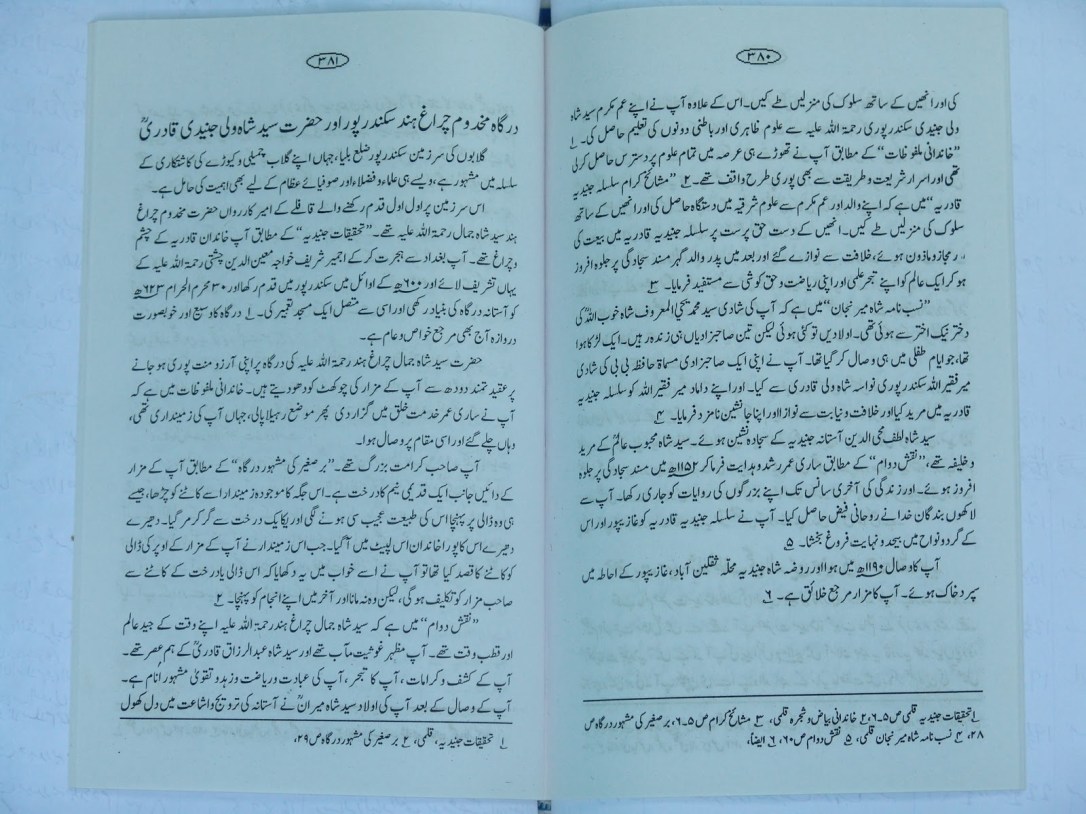 ۳۸۰
کی اور انھیں کے ساتھ سلوک کی منزلیں طے کیں۔ اس کے علاوہ آپ نے اپنے عم مکرم سید شاہ
ولی جنیدی سکندرپوری رحمۃ اللہ علیہ سے علوم ظاہری اور باطنی دونوں کی تعلیم حاصل کی۔ ۱
”خاندانی ملفوظات“ کے مطابق آپ نے تھوڑے ہی عرصہ میں تمام علوم پر دسترس حاصل کرلی
تھی اور اسرار شریعت و طریقت سے بھی پوری طرح واقف تھے۔ ۲ ”مشائخ کرام سلسلہ جنیدیہ
قادریہ“ میں ہے کہ اپنے والد اور عم مکرم سے علوم شرقیہ میں دستگاہ حاصل کی اور انھیں کے ساتھ
سلوک کی منزلیں طے کیں۔ انھیں کے دست حق پرست پر سلسلہ جنیدیہ قادریہ میں بیعت کی
، مجاز و ماذون ہوئے، خلافت سے نوازے گئے اور بعد میں پدر والد گہر مسند سجادگی پر جلوہ افروز
ہو کر ایک عالم کو اپنے تبحر علمی اور اپنی ریاضت و حق کوشی سے مستفید فرمایا۔ ۳
”نسب نامہ شاہ میر نجان“ میں ہے کہ آپ کی شادی سید محمد یحییٰ المعروف شاہ خوب اللہؒ کی
دختر نیک اختر سے ہوئی تھی۔ اولادیں تو کئی ہوئی لیکن تین صاحبزادیاں ہی زندہ رہیں۔ ایک لڑکا ہوا
تھا، جو ایام طفلی میں ہی وصال کر گیا تھا۔ آپ نے اپنی ایک صاحبزادی مسماۃ حافظہ بی بی کی شادی
میر فقیر اللہ سکندرپوری نواسہ شاہ ولی قادری سے کیا۔ اور اپنے داماد میر فقیر اللہ کو سلسلہ جنیدیہ
قادریہ میں مرید کیا اور خلافت و نیابت سے نوازا اور اپنا جانشین نامزد فرمایا۔ ۴
سید شاہ لطف محی الدین آستانہ جنیدیہ کے سجادہ نشین ہوئے۔ سید شاہ محبوب عالمؒ کے مرید
و خلیفہ تھے، ”نقش دوام“ کے مطابق ساری عمر رشد و ہدایت فرما کر ۱۱۵۲ھ میں مسند سجادگی پر جلوہ
افروز ہوئے۔ اور زندگی کی آخری سانس تک اپنے بزرگوں کی روایات کو جاری رکھا۔ آپ سے
لاکھوں بندگان خدا نے روحانی فیض حاصل کیا۔ آپ نے سلسلہ جنیدیہ قادریہ کو غازیپور اور اس
کے گرد و نواح میں بیحد و نہایت فروغ بخشا۔ ۵
آپ کا وصال ۱۱۹۰ھ میں ہوا اور روضہ شاہ جنیدیہ محلّہ ثقلین آباد، غازیپور کے احاطہ میں
سپرد خاک ہوئے۔ آپ کا مزار مرجع خلائق ہے۔ ۶
۱ تحقیقات جنیدیہ قلمی ص ۵۔۶، ۲ خاندانی بیاض و شجرہ قلمی، ۳ مشائخ کرام ص ۵۔۶، بر صغیر کی مشہور درگاہ ص
۲۸، ۴ نسب نامہ شاہ میر نجان قلمی، ۵ نقش دوام ص ۶۰، ۶ ایضاً،
۳۸۱
درگاہ مخدوم چراغ ہند سکندرپور اور حضرت سید شاہ ولی جنیدی قادریؒ
گلابوں کی سرزمین سکندرپور ضلع بلیا، جہاں اپنے گلاب چمیلی و کیوڑے کی کاشتکاری کے
سلسلہ میں مشہور ہے، ویسے ہی علماء و فضلاء اور صوفیائے عظام کے لیے بھی اہمیت کی حامل ہے۔
اس سرزمین پر اول اول قدم رکھنے والے قافلے کے امیر کارواں حضرت مخدوم چراغ
ہند سید شاہ جمال رحمۃ اللہ علیہ تھے۔ ”تحقیقات جنیدیہ“ کے مطابق آپ خاندان قادریہ کے چشم
و چراغ تھے۔ آپ بغداد سے ہجرت کر کے اجمیر شریف خواجہ معین الدین چشتی رحمۃ اللہ علیہ کے
یہاں تشریف لائے اور ۶۰۰ھ کے اوائل میں سکندرپور میں قدم رکھا اور ۳۰ محرم الحرام ۶۲۳ھ
کو آستانہ درگاہ کی بنیاد رکھی اور اسی سے متصل ایک مسجد تعمیر کی۔ ۱ درگاہ کا وسیع اور خوبصورت
دروازہ آج بھی مرجع خواص و عام ہے۔
حضرت سید شاہ جمال چراغ ہند رحمۃ اللہ علیہ کی درگاہ پر اپنی آرزو منت پوری ہو جانے
پر عقیدتمند دودھ سے آپ کے مزار کی چوکھٹ کو دھودیتے ہیں۔ خاندانی ملفوظات میں ہے کہ
آپ نے ساری عمر خدمت خلق میں گزار دی پھر موضع رہیلا پالی، جہاں آپ کی زمینداری تھی،
وہاں چلے گئے اور اسی مقام پر وصال ہوا۔
آپ صاحب کرامت بزرگ تھے۔ ”بر صغیر کی مشہور درگاہ“ کے مطابق آپ کے مزار
کے دائیں جانب ایک قدیمی نیم کا درخت ہے۔ اس جگہ کا موجودہ زمیندار اسے کاٹنے کو چڑھا، جیسے
ہی وہ ڈالی پر پہنچا اس کی طبیعت عجیب سی ہونے لگی اور یکایک درخت سے گر کر مر گیا۔ دھیرے
دھیرے اس کا پورا خاندان اس لپیٹ میں آگیا۔ جب اس زمیندار نے آپ کے مزار کے اوپر کی ڈالی
کو کاٹنے کا قصد کیا تھا تو آپ نے اسے خواب میں یہ دکھایا کہ اس ڈالی یا درخت کے کاٹنے سے
صاحب مزار کو تکلیف ہوگی، لیکن وہ نہ مانا اور آخر میں اپنے انجام کو پہنچا۔ ۲
”نقش دوام“ میں ہے کہ سید شاہ جمال چراغ ہند رحمۃ اللہ علیہ اپنے وقت کے جید عالم
اور قطب وقت تھے۔ آپ مظہر غوثیت مآب تھے اور سید شاہ عبدالرزاق قادریؒ کے ہم عصر تھے۔
آپ کے کشف و کرامات، آپ کا تبحر، آپ کی عبادت و ریاضت و زہد و تقویٰ مشہور انام ہے۔
آپ کے وصال کے بعد آپ کی اولاد سید شاہ میراںؒ نے آستانہ کی ترویج و اشاعت میں دل کھول
۱ تحقیقات جنیدیہ، قلمی، ۲ بر صغیر کی مشہور درگاہ ص ۲۹،